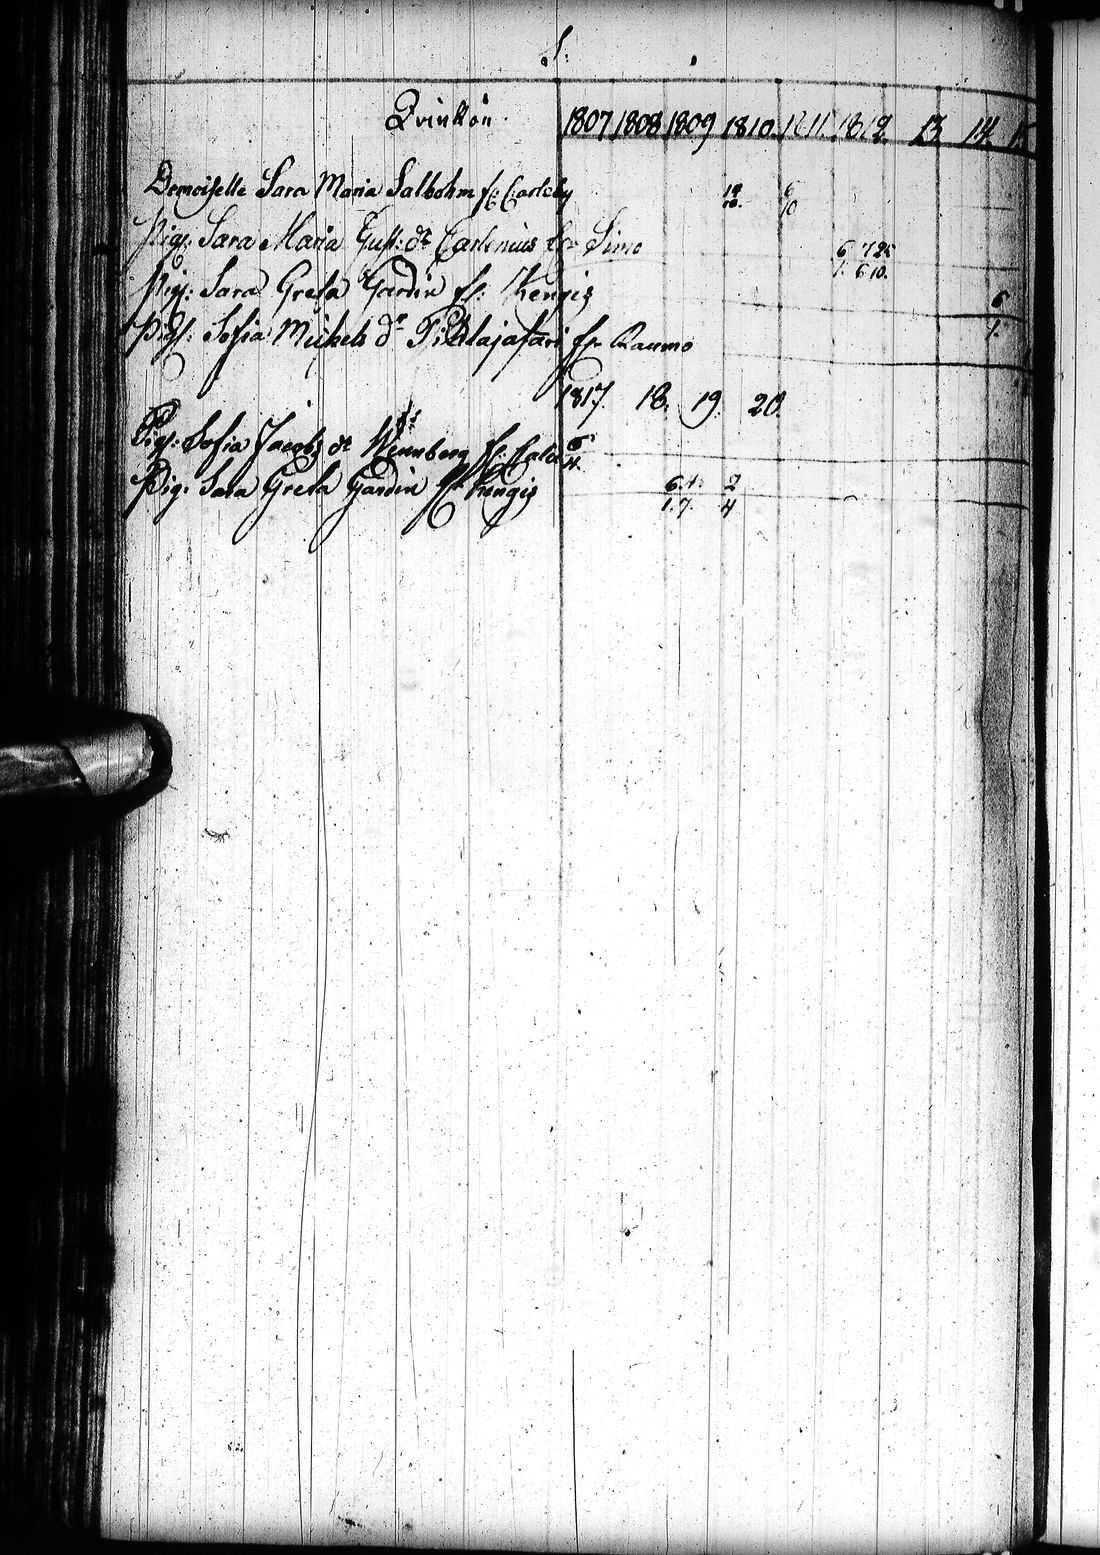 S:
Qvinkön 1807 1808 1809 1810 1811 1812 13 14 15
Demoiselle Sara Maria Salbohm fr: Carleby 19 10. 6 10
Pig: Sara Maria Gust: dr Carlenius fr Simo 6 7 25 1. 6 10.
Pig: Sara Greta Gardin fr: Kengis 6 1.
Pig: Sofia Michels dr fr Raumo
1817. 18. 19. 20.
Pig: Sofia Jacobs dr Wennberg fr: 6 4.
Pig: Sara Greta Gardin fr Kengis 6.4. 2 1.7. 4